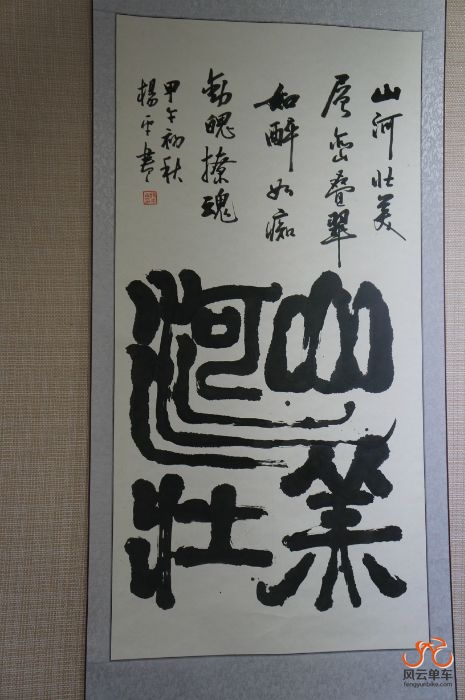 山河壮美
层峦叠翠
如醉如痴
動魄撩魂
甲午初秋
楊平書
山河壮美
风云单车
fengyunbike.com